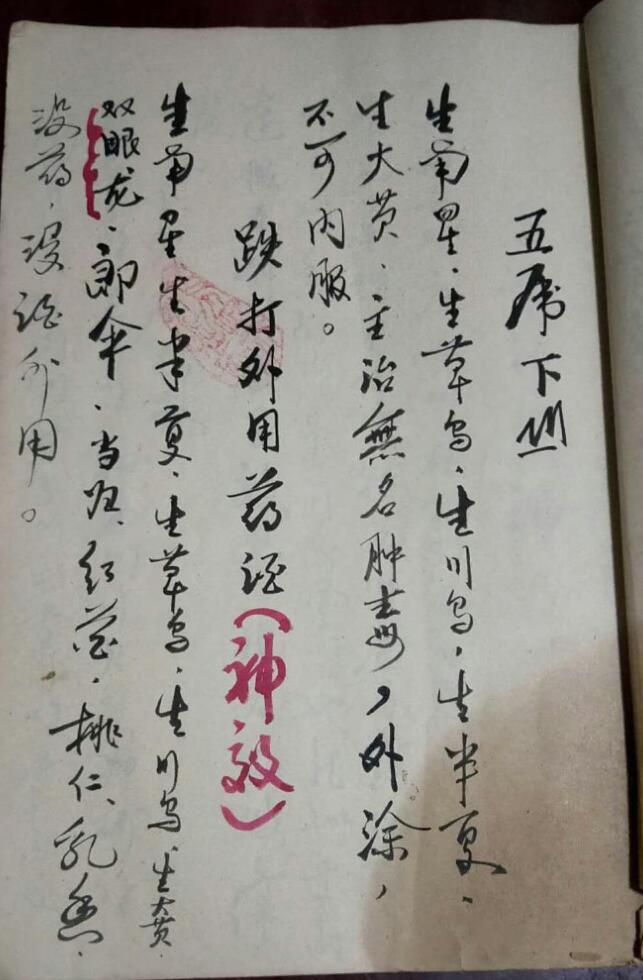 五虎下川
生南星、生草乌、生川乌、生半夏、
生大黄、主治無名肿毒,外涂,
不可内服。
跌打外用药酒(神效)
生南星生半夏、生草乌、生川乌、生黄、
双眼龙、郎伞、当归、红花、桃仁、乳香、
没药,浸酒外用。